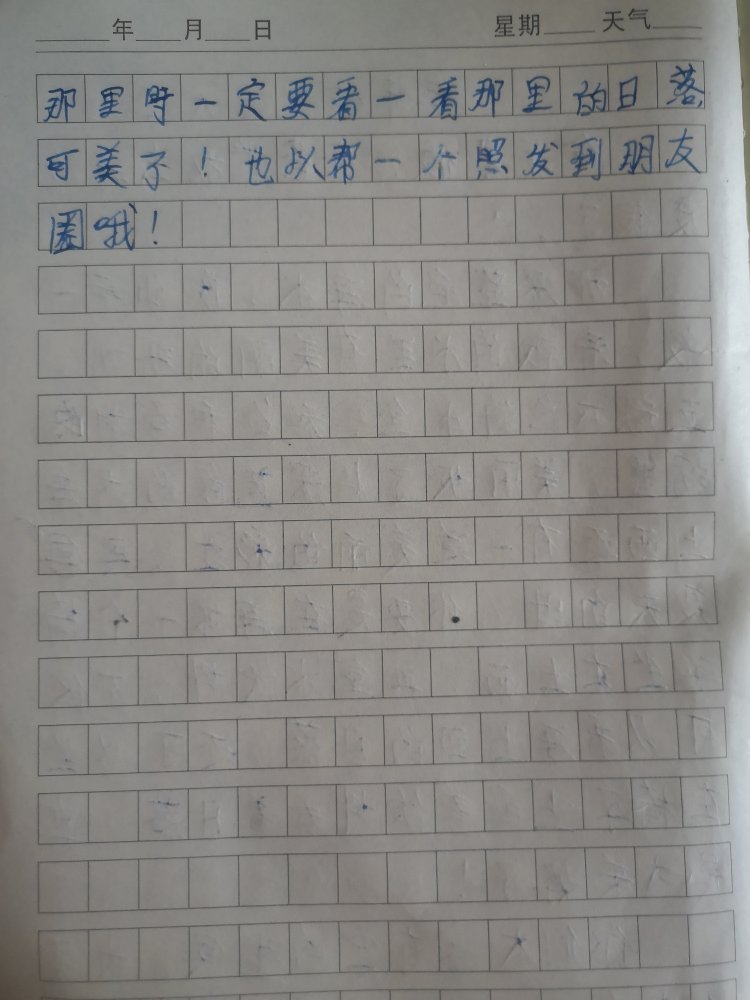 年 月 日 星期 天气
那里时一定要看一看那里的日落
可美了!也以帮一个照发到朋友
圈哦!